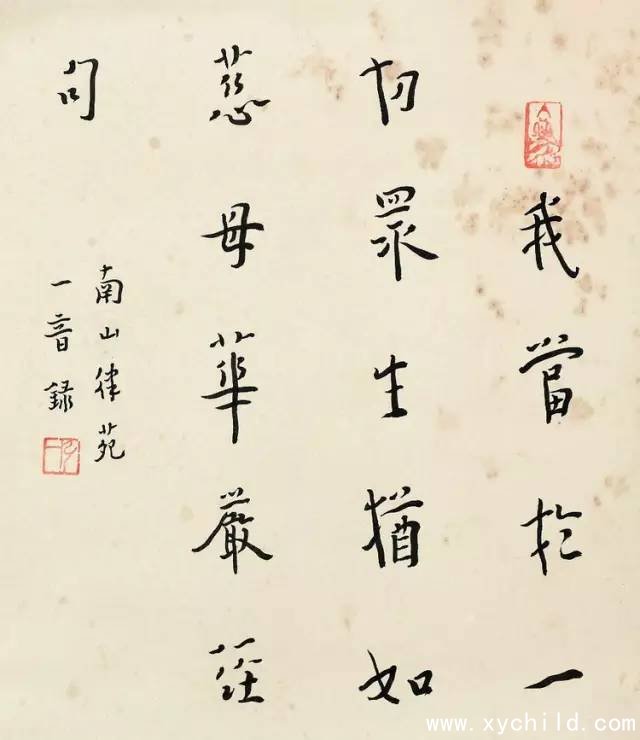 我當於一
切眾生猶如
慈母華嚴經
句
南山律苑
一音錄
www.xychild.com